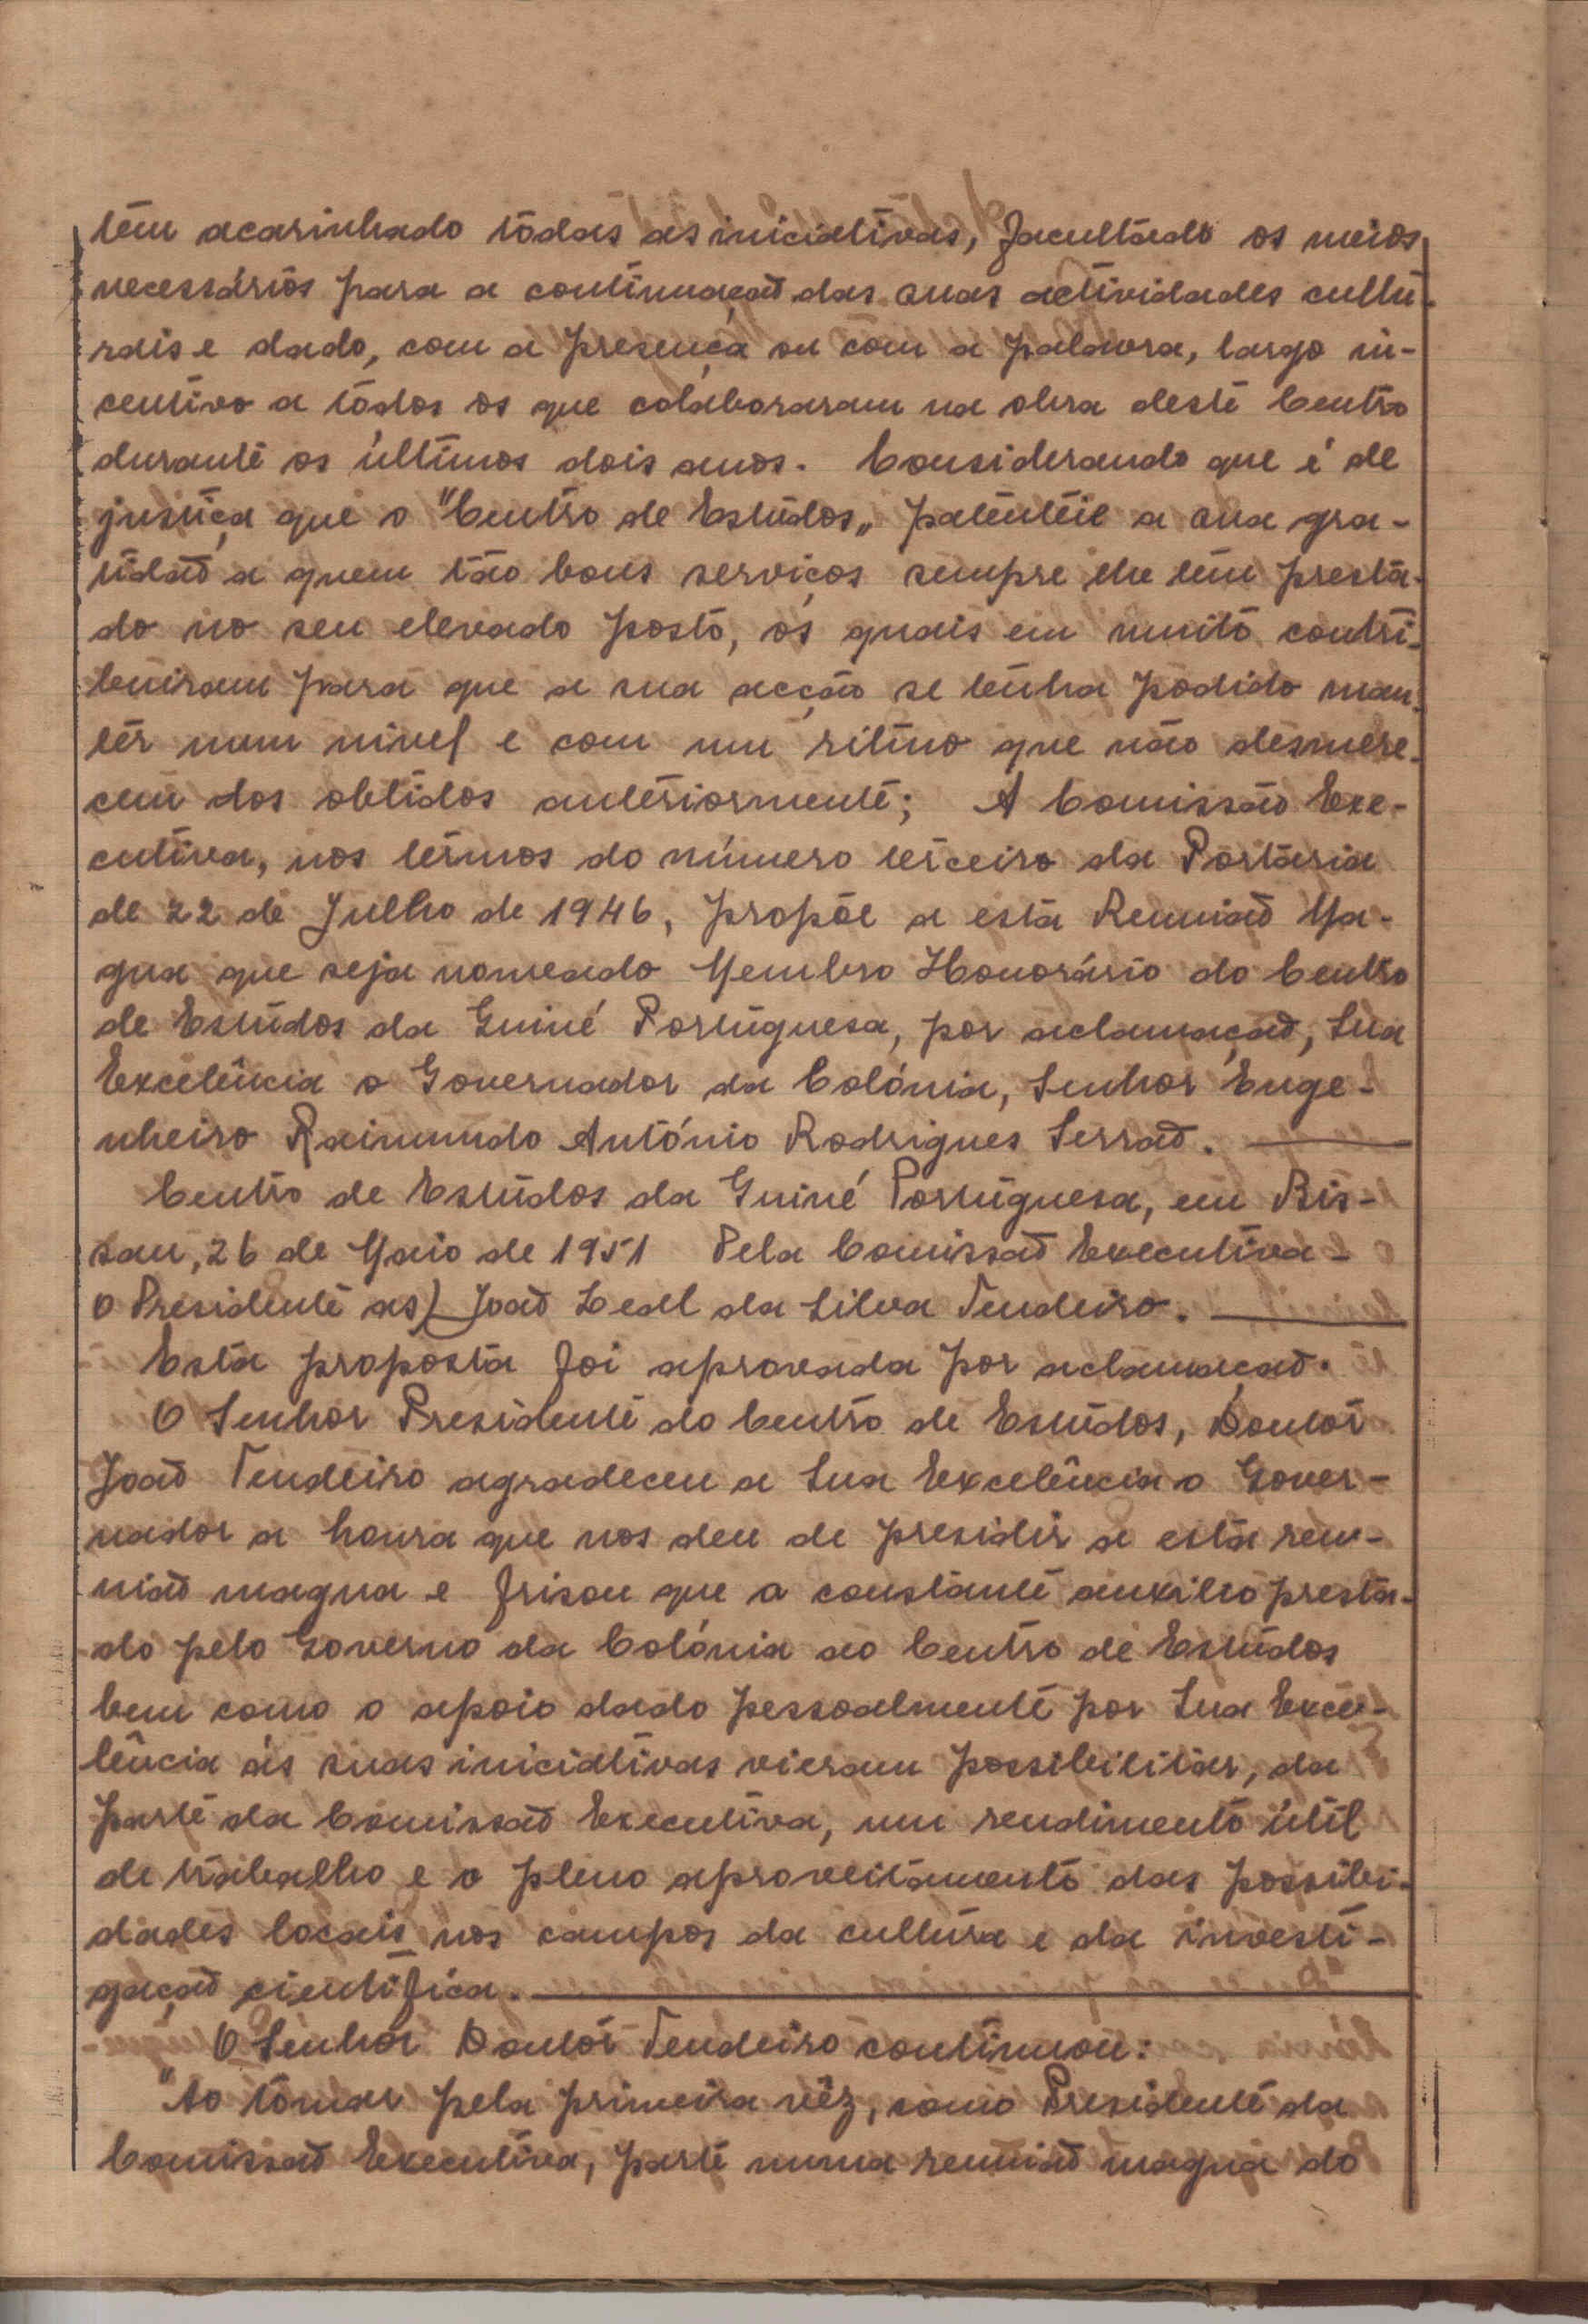 têm acarinhado tôdas as iniciativas, facultado os meios
necessários para a continuação das suas actividades cultu-
rais e dado, com a presença ou com a palavra, largo in-
centivo a tôdos os que colaboraram na obra deste Centro
durante os últimos dois anos. Considerando que é de
justiça que o "Centro de Estudos„ patenteie a sua gra-
tidão a quem tão bons serviços sempre lhe têm presta-
do no seu elevado posto, os quais em muito contri-
buiram para que a sua acção se tenha podido man-
ter num nivel e com um ritmo que não desmere-
cem dos obtidos anteriormente; A Comissão Exe-
cutiva, nos termos do número terceiro da Portaria
de 22 de Julho de 1946, propõe a esta Reunião Ma-
gna que seja nomeado Membro Honorário do Centro
de Estudos da Guiné Portuguesa, por aclamação, Sua
Excelência o Governador da Colónia, Senhor Enge-
nheiro Raimundo António Rodrigues Serrão.
Centro de Estudos da Guiné Portuguesa, em Bis-
sau, 26 de Maio de 1951 Pela Comissão Executiva -
O Presidente as) João Leal da Silva Tendeiro.
Esta proposta foi aprovada por aclamação.
O Senhor Presidente do Centro de Estudos, Doutor
João Tendeiro agradeceu a Sua Excelência o Gover-
nador a honra que nos deu de presidir a esta reu-
nião magna e frisou que o constante auxilio presta-
do pelo Governo da Colónia ao Centro de Estudos
bem como o apoio dado pessoalmente por Sua Exce-
lência às suas iniciativas vieram possibilitar, da
parte da Comissão Executiva, um rendimento útil
de trabalho e o pleno aproveitamento das possibi-
dades locais nos campos da cultura e da investi-
gação cientifica.
O Senhor Doutor Tendeiro continuou:
"Ao tomar pela primeira vêz, como Presidente da
Comissão Executiva, parte numa reunião magna do